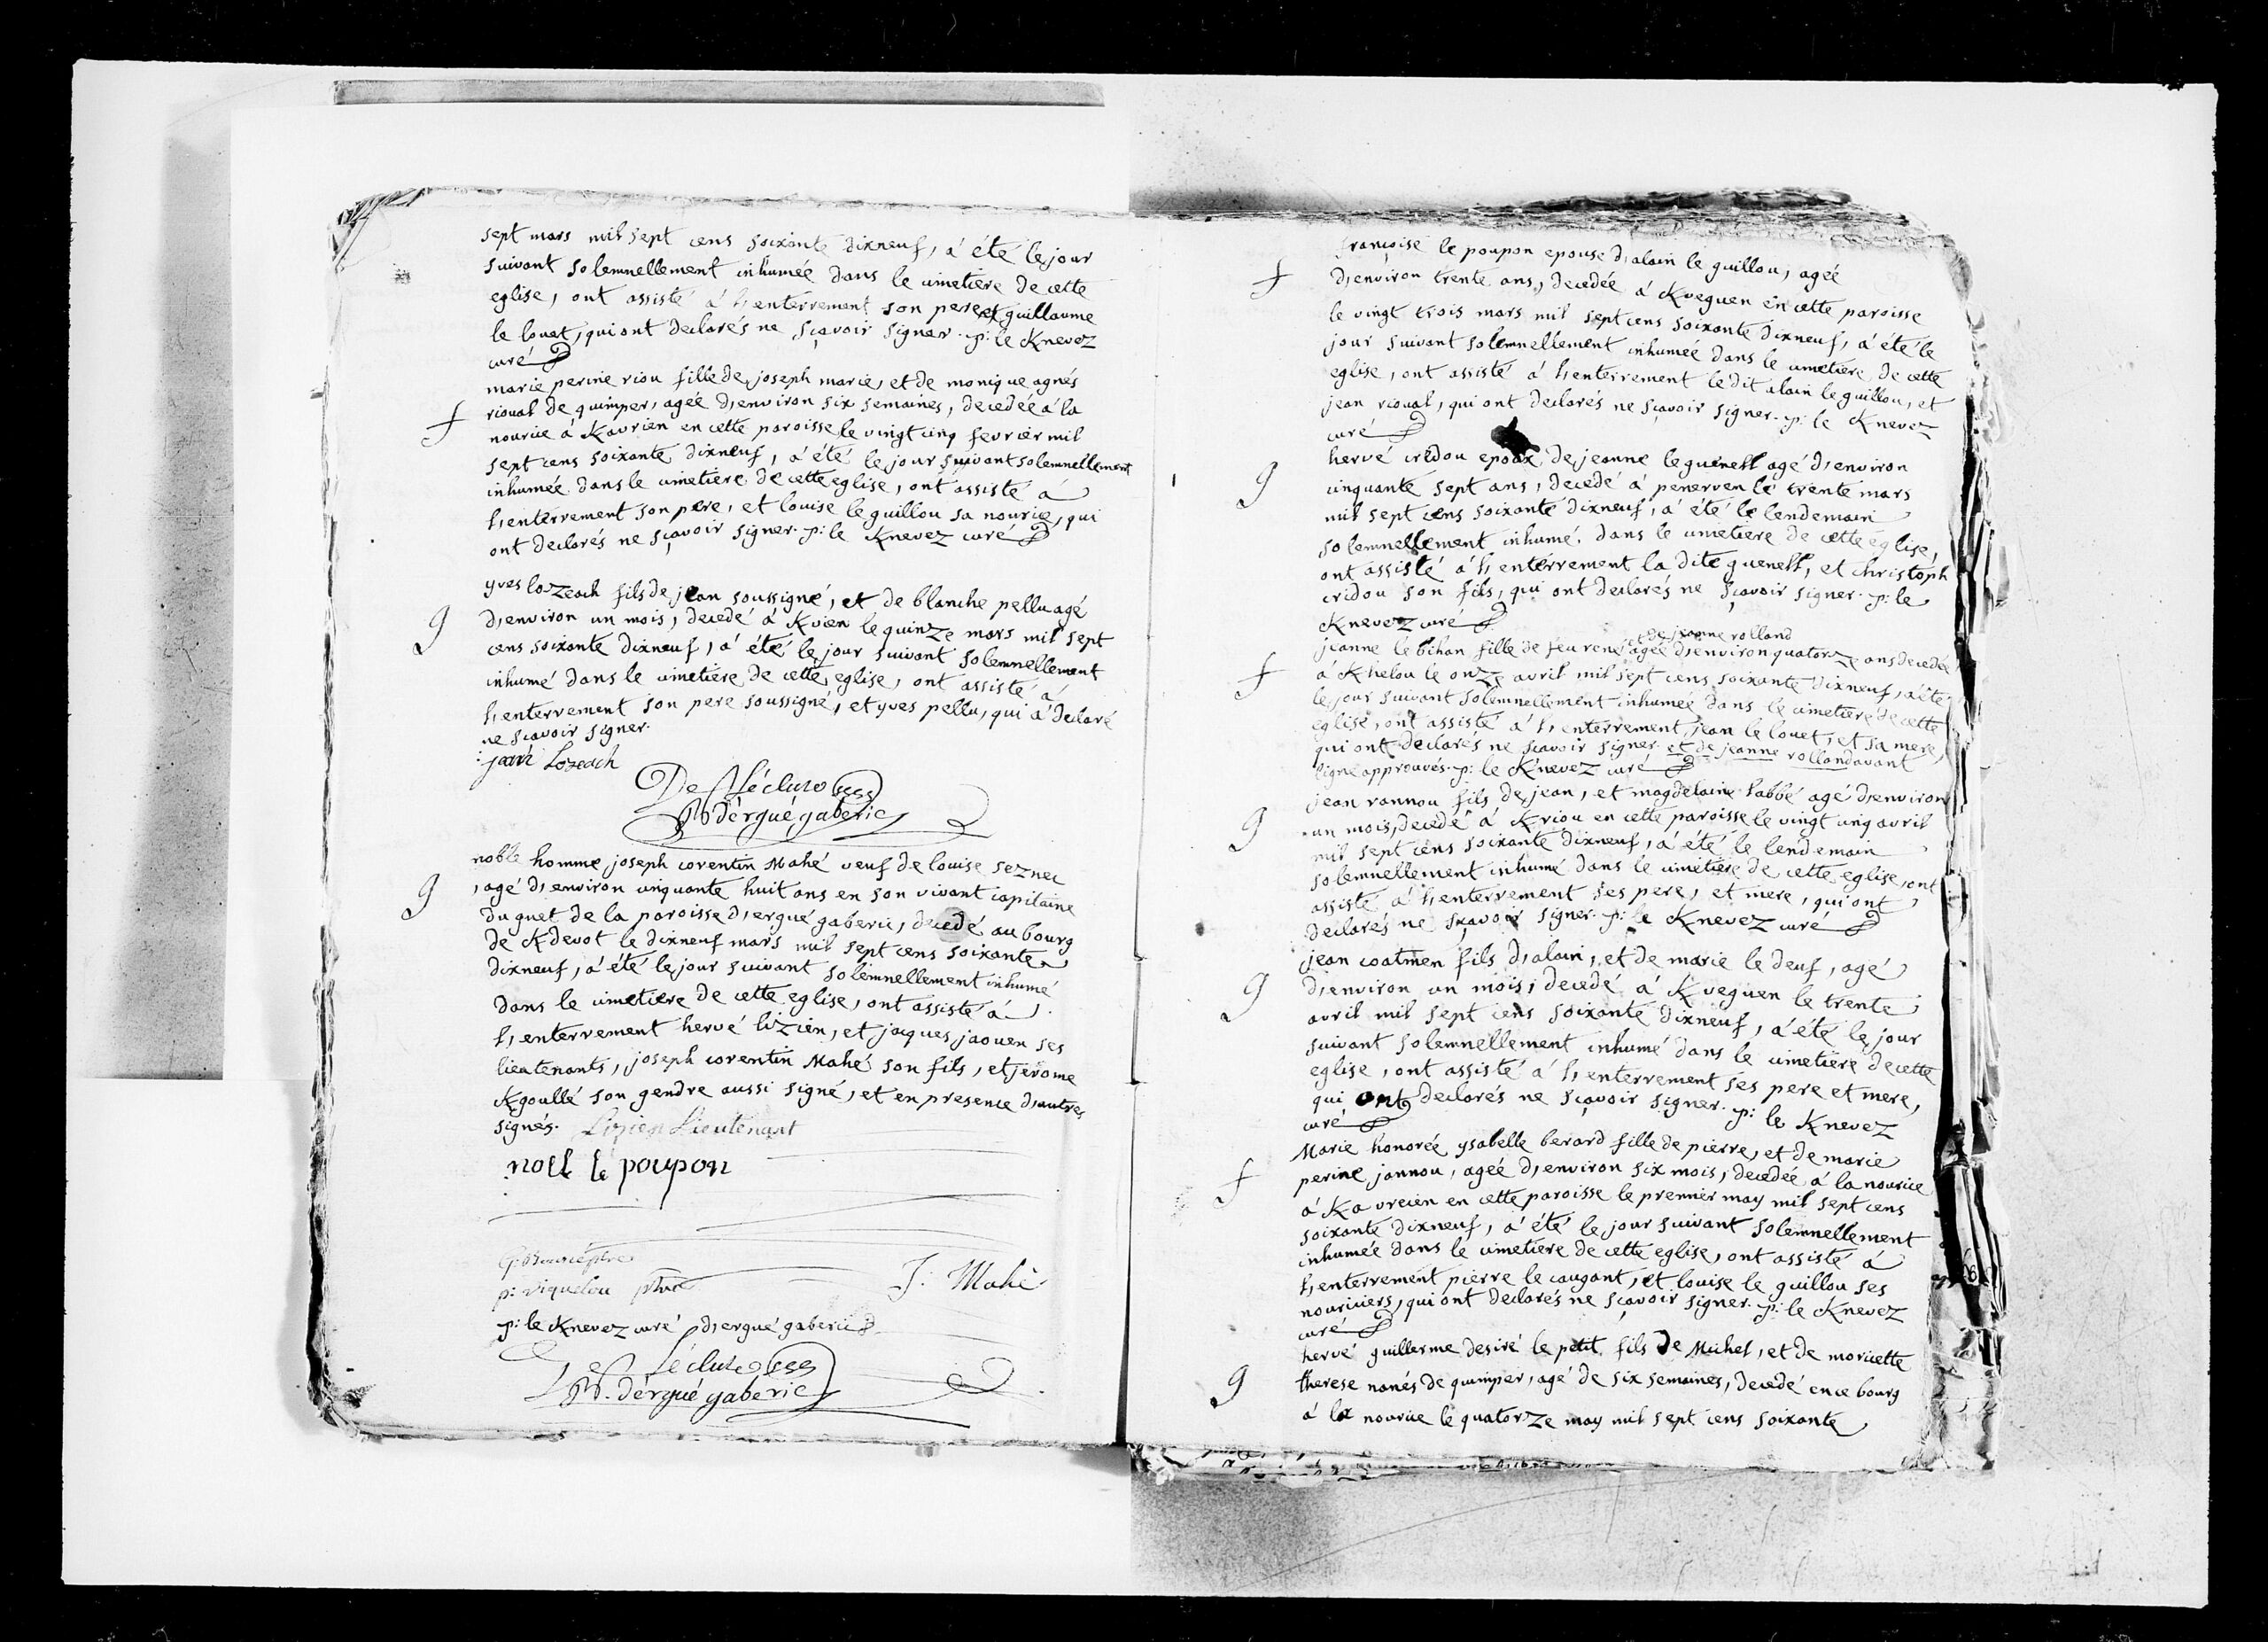 sept mars mil sept cens soixante dixneuf, á été le jour
suivant solemnellement inhumée dans le cimetiere de cette
eglise, ont assisté á l,enterrement son pere et guillaume
le louet, qui ont declarés ne sçavoir signer. p: le Knevez
curé
marie perine riou fille de joseph marie, et de monique agnés
f rioual de quimper, ageé d,environ six semaines, decedée á la
nourice á Kavrien en cette paroisse le vingt cinq fevrier mil
sept cens soixante dixneuf, á été le jour suivant solemnellement
inhumée dans le cimetiere de cette eglise, ont assisté á
l,enterrement son pere, et louise le guillou sa nourice, qui
ont declarés ne sçavoir signer. p: le Knevez curé
yves lozeach fils de jean soussigné, et de blanche pellu agé
g d,environ un mois, decedé á Kvien le quinze mars mil sept
cens soixante dixneuf, á été le jour suivant solemnellement
inhumé dans le cimetiere de cette eglise, ont assisté á
l,enterrement son pere soussigné, et yves pellu, qui á declaré
ne sçavoir signer.
Lozeach
De Lécluse
R. d'ergué gaberic
noble homme joseph corentin Mahé veuf de louise seznec
g , agé d,environ cinquante huit ans en son vivant capitaine
du guet de la paroisse d,ergué gaberic, decedé au bourg
de Kdevot le dixneuf mars mil sept cens soixante
dixneuf, á été le jour suivant solemnellement inhumé
dans le cimetiere de cette eglise, ont assisté á
l,enterrement hervé lizien, et jacques jaouen ses
lieutenants, joseph corentin Mahé son fils, et jerome
Kgoullé son gendre aussi signé, et en presence d,autres
signés. Lizien Lieutenant
noel le poupon
J: Mahé
p: viquelou ptre
p: le Knevez curé d,ergué gaberic
De Lécluse
R. d'ergué gaberic
françoise le poupon epouse d,alain le guillou, ageé
f d,environ trente ans, decedée á Kveguen en cette paroisse
le vingt trois mars mil sept cens soixante dixneuf, á été le
jour suivant solemnellement inhumée dans le cimetiere de cette
eglise, ont assisté á l,enterrement le dit alain le guillou, et
jean rioual, qui ont declarés ne sçavoir signer. p: le Knevez
curé
hervé credou epoux de jeanne le guenell agé d,environ
g cinquante sept ans, decedé á penerven le trente mars
mil sept cens soixante dixneuf, á été le lendemain
solemnellement inhumé dans le cimetiere de cette eglise,
ont assisté á l,enterrement la dite guenell, et christoph
cridou son fils, qui ont declarés ne sçavoir signer. p: le
Knevez curé
et de jeanne rolland
jeanne le bihan fille de feu rené agée d,environ quatorze ans decedée
f á Khelou le onze avril mil sept cens soixante dixneuf, á été
le jour suivant solemnellement inhumée dans le cimetiere de cette
eglise, ont assisté á l,enterrement, jean le louet, et sa mere,
qui ont declarés ne sçavoir signer. et de jeanne rolland avant
ligne approuvés. p: le Knevez curé
jean rannou fils de jean, et magdelaine l'abbé agé d,environ
g un mois, decedé á Kriou en cette paroisse le vingt cinq avril
mil sept cens soixante dixneuf, á été le lendemain
solemnellement inhumé dans le cimetiere de cette eglise, ont
assisté á l,enterrement ses pere, et mere, qui ont
declarés ne sçavoir signer. p: le Knevez curé
jean coatmen fils d,alain, et de marie le deuf, agé
g d,environ un mois, decedé á Kveguen le trente
avril mil sept cens soixante dixneuf, á été le jour
suivant solemnellement inhumé dans le cimetiere de cette
eglise, ont assisté á l,enterrement ses pere et mere,
qui ont declarés ne sçavoir signer. p: le Knevez
curé
Marie honoreé ysabelle berard fille de pierre, et de marie
f perine jannou, ageé d,environ six mois, decedée á la nourice
á Kavrecien en cette paroisse le premier may mil sept cens
soixante dixneuf, á été le jour suivant solemnellement
inhumée dans le cimetiere de cette eglise, ont assisté á
l,enterrement pierre le caugant, et louise le guillou ses
nouriciers, qui ont declarés ne sçavoir signer. p: le Knevez
curé
hervé guillerme desiré le petit fils de Michel, et de moricette
g therese nanés de quimper, agé de six semaines, decedé en ce bourg
á la nourice le quatorze may mil sept cens soixante